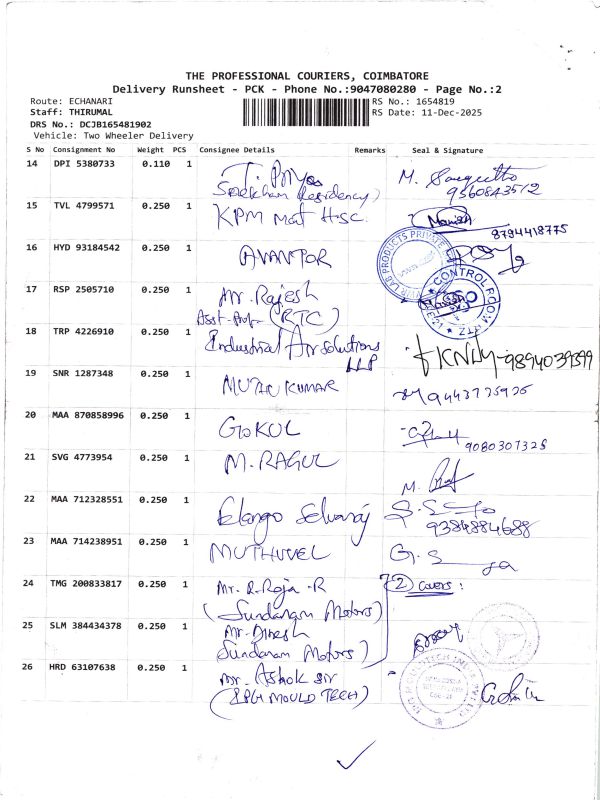 THE PROFESSIONAL COURIERS, COIMBATORE
Delivery Runsheet - PCK - Phone No.:9047080280 - Page No.:2
Route: ECHANARI RS No.: 1654819
Staff: THIRUMAL RS Date: 11-Dec-2025
DRS No.: DCJB165481902
Vehicle: Two Wheeler Delivery
S No Consignment No Weight PCS Consignee Details Remarks Seal & Signature
14 DPI 5380733 0.110 1 M.
Residency) 9360843512
15 TVL 4799571 0.250 1 KPM Mat H.SC. Manish
8794418775
16 HYD 93184542 0.250 1 AVANTOR
LAB PRODUCTS PRIVATE
CONTROL ROOM
17 RSP 2505710 0.250 1 Mr. Rajesh
Asst. Prof (RTC)
18 TRP 4226910 0.250 1 Industrial Air Solutions
LLP 9894039399
19 SNR 1287348 0.250 1 MUTHU KUMAR 9443775925
20 MAA 870858996 0.250 1 GOKUL
9080307325
21 SVG 4773954 0.250 1 M. RAGUL M.
22 MAA 712328551 0.250 1 Elango Selvaraj
9384884688
23 MAA 714238951 0.250 1 MUTHUVEL G. S
24 TMG 200833817 0.250 1 Mr. R. Raja - R (2) covers:
(Sundaram Motors)
25 SLM 384434378 0.250 1 Mr. Dinesh
Sundaram Motors)
26 HRD 63107638 0.250 1 Mr. Ashok Sir
MOULD TECH)